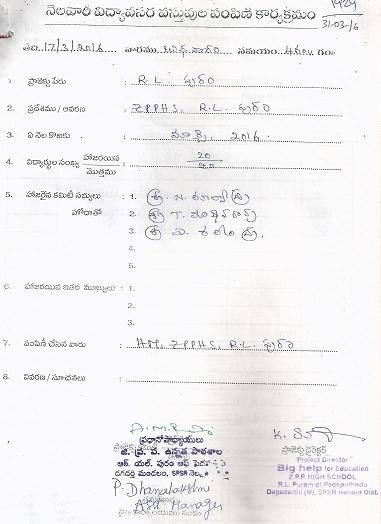 నెలవారీ విద్యావసర వస్తువుల పంపిణీ కార్యక్రమం
31-03-16
తేది. 17/3/2016 వారము సమయం. గం॥
1. ప్రాజెక్టు పేరు : R. L. పురం
2. ప్రదేశము / ఆవరణ : ZPPHS, R.L. పురం
3. ఏ నెల కొఱకు : మార్చి, 2016
4. విద్యార్థుల సంఖ్య హాజరయిన / మొత్తము : 20 / 20
5. హాజరైన కమిటీ సభ్యులు : 1. శ్రీ. N.
హోదాతో 2. శ్రీ T.
3. శ్రీ
4.
5.
6. హాజరయిన ఇతర ముఖ్యులు : 1.
2.
3.
7. పంపిణీ చేసిన వారు : HM, ZPPHS, R.L. పురం
8. వివరణ / సూచనలు :
ప్రధానోపాధ్యాయులు
జి. ప్ర. ప. ఉన్నత పాఠశాల
ఆర్. యల్. పురం ఆఫ్
దగదర్తి మండలం, SPSR
P. Dhanalakshmi
Asst Manager
ప్రాజెక్టు డైరెక్టర్
Project Director
Big help for Education
Z.P.P. HIGH SCHOOL
R.L. Puram of Pedaputhedu
Dagadarthi (M), SPSR Nellore Dist.